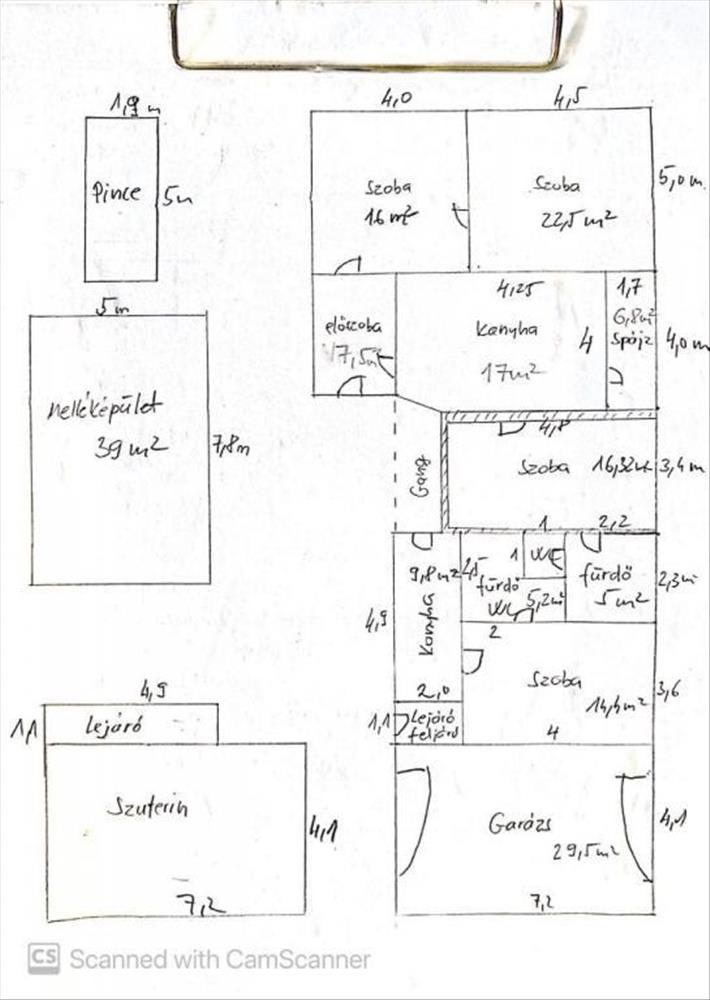 1,9 m
Pince
5m
4,0
4,5
Szoba
16 m²
Szoba
22,5 m²
5,0 m
előszoba
7,5 m
4,25
Konyha
17 m²
4
1,7
6,8 m²
Spájz
4,0 m
5 m
melléképület
39 m²
7,8 m
Gang
4,8
Szoba
16,32 m²
3,4 m
9,8 m²
Konyha
4,9
2,0
fürdő
WC
5,2 m²
2
1
1
WC
2,2
fürdő
5 m²
2,3 m
Szoba
14,4 m²
4
3,6
1,1
Lejáró
feljáró
4,9
1,1
Lejáró
Szuterin
4,1
7,2
Garázs
29,5 m²
4,1
7,2
CS Scanned with CamScanner